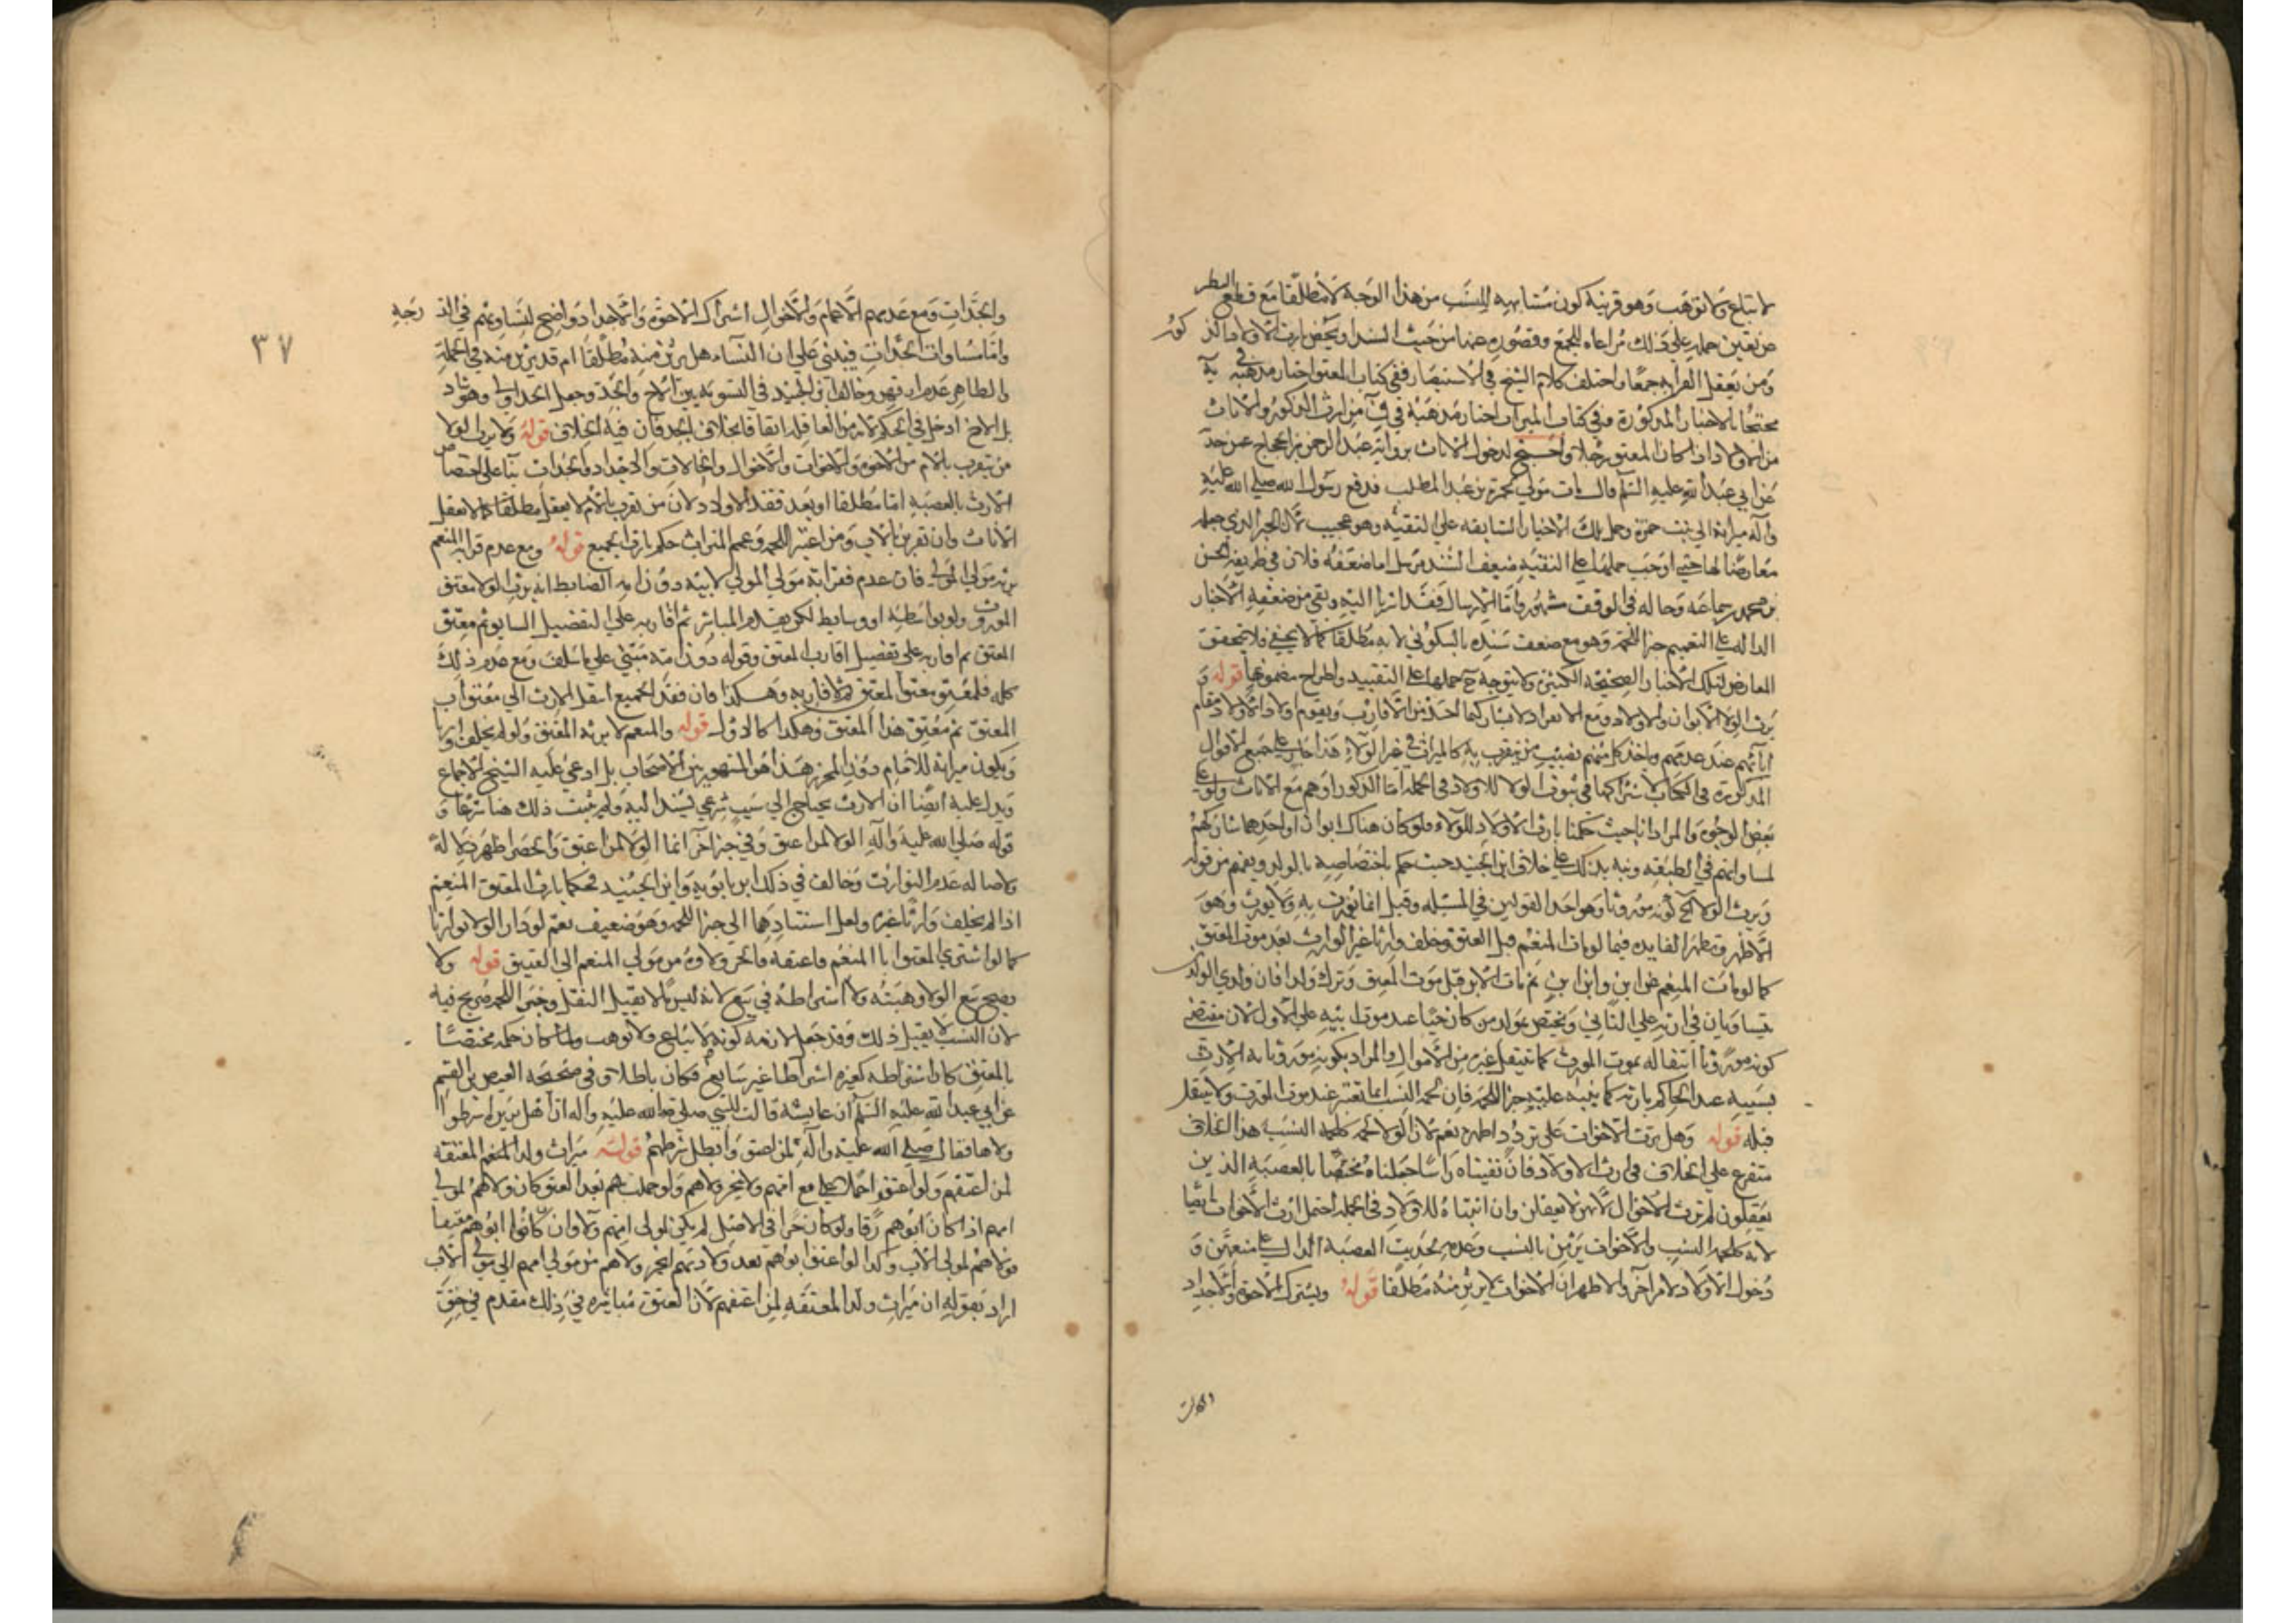 لا تباع ولا توهب وهو قرينة كون مشابهته للنسب من هذا الوجه لا مطلقا مع قطع النظر
عن تعين حمله على ذلك مراعاة للجمع وقصوره عنها من حيث السند ويخص بارث الاولاد الذكور
ومن يعقل القرابة جمعا واختلف كلام الشيخ في الاستبصار ففي كتاب العتق اختار مذهبه في ية
محتجا بالاخبار المذكورة وفي كتاب الميراث اختار مذهبه في ف من ارث الذكور والاناث
من الاولاد اذا كان المعتق رجلا واحتج لدخول الاناث برواية عبد الرحمن بن الحجاج عمن حدثه
عن ابي عبد الله عليه السلم قال مات مولى لحمزة بن عبد المطلب فدفع رسول الله صلى الله عليه
وآله ميراثه الى بنت حمزة وحمل تلك الاخبار السابقة على التقية وهو عجيب لان الخبر الذي جعله
معارضا لها حتى اوجب حملها على التقية ضعيف السند مرسل اما ضعفه فلان في طريقه الحسن
بن محمد بن سماعه وحاله في الوقف مشهور واما الارسال فقد اشرنا اليه وبقي من ضعفه الاخبار
الدالة على التعميم خبر اللحمة وهو مع ضعف سنده بالسكوني لا به مطلقا كما لا يخفى فلا يتحقق
المعارض لتلك الاخبار الصحيحة الكثيرة ولا يتوجه ح حملها على التقييد واطراح مضمونها قوله و
يرث الولاء الابوان والاولاد ومع الانفراد لا يشاركهما احد من الاقارب ويقوم اولاد الاولاد مقام
آبائهم عند عدمهم وياخذ كل منهم نصيب من يتقرب به كالميراث في غير الولاء هذا جار على جميع الاقوال
المذكورة في الكتاب لاشتراكها في ثبوت الولاء للاولاد في الجملة اما الذكور او هم مع الاناث ولو على
بعض الوجوه والمراد انا حيث حكمنا بارث الاولاد للولاء فلو كان هناك ابوان او احدهما شاركهم
لمساواتهم في الطبقة ونبه بذلك على خلاف ابن الجنيد حيث حكم باختصاصه بالولد ويفهم من قوله
ويرث الولاء الخ كونه موروثا وهو احد القولين في المسئلة وقيل انما يورث به ولا يورث وهو
الاظهر وتظهر الفايدة فيما لو مات المنعم قبل العتيق وخلف وارثا غير الوارث بعد موت العتيق
كما لو مات المنعم عن ابن وابن ابن ثم مات الابن قبل موت العتيق وترك ولدا فان ولدي الولدين
يتساويان في ارثه على الثاني ويختص بمولد من كان حيا عند موت ابيه على الاول لان مقتضى
كونه موروثا انتقاله بموت المورث كما ينتقل غيره من الاموال والمراد بكونه موروثا به الارث
بسببه عند الحاكم بارثه كما ينبه عليه خبر اللحمة فان لحمة النسب انما تعتبر عند موت المورث ولا ينتقل
قبله قوله وهل يرث الاخوات على تردد اظهره نعم لان الولاء لحمة كلحمة النسب هذا الخلاف
متفرع على الخلاف في ارث الاولاد فان نفيناه راسا وجعلناه مختصا بالعصبة الذين
يعقلون لم ترث الاخوات لانهن لا يعقلن وان اثبتناه للاولاد في الجملة احتمل ارث الاخوات ايضا
لانه كلحمة النسب والاخوات يرثن بالنسب وعدمه لحديث العصبة الدال على منعهن و
دخول الاولاد لامر آخر والاظهر ان الاخوات لا يرثن منه مطلقا قوله ويشترك الاخوة والاجداد
والجدات
٣٧
والجدات ومع عدمهم الاعمام والاخوال اشتراك الاخوة والاجداد واضح لتساويهم في الدرجة
واما مساواة الجدات فيبنى على ان النساء هل يرثن منه مطلقا ام قد يرثن منه في الجملة
والظاهر عدم ارثهن وخالف ابن الجنيد في التسوية بين الاخ والجد وجعل الجد اولى وهو شاذ
بل الاخ ادخل في الحكم لانه من العاقلة اتفاقا بخلاف الجد فان فيه الخلاف قوله ولا يرث الولاء
من يتقرب بالام من الاخوة والاخوات والاخوال والخالات والاجداد والجدات بناء على اختصاص
الارث بالعصبة اما مطلقا او بعد فقد الاولاد لان من تقرب بالام لا يعقل مطلقا كما لا يعقل
الاناث وان تقربن بالاب ومن اعتبر اللحمة وعمم الميراث حكم بارث الجميع قوله ومع عدم قرابة المنعم
يرثه مولى المولى فان عدم فقرابة مولى المولى لابيه دون امه الضابط انه يرث الولاء معتق
المورث ولو بواسطة او وسايط لكن يقدم المباشر ثم اقاربه على التفصيل السابق ثم معتق
المعتق ثم اقاربه على تفصيل اقارب المعتق وقوله دون امه مبني على ما سلف ومع عدم ذلك
كله فلمعتق معتق المعتق ثم لاقاربه وهكذا فان فقد الجميع انتقل الارث الى معتق اب
المعتق ثم معتق هذا المعتق وهكذا كالاول قوله والمنعم لا يرثه المعتق ولو لم يخلف وارثا
ويكون ميراثه للامام دون المحرر هذا هو المشهور بين الاصحاب بل ادعى عليه الشيخ الاجماع
ويدل عليه ايضا ان الارث يحتاج الى سبب شرعي يستند اليه ولم يثبت ذلك هنا شرعا و
قوله صلى الله عليه وآله الولاء لمن اعتق وفي خبر آخر انما الولاء لمن اعتق والحصر اظهر دلالة
ولاصالة عدم التوارث وخالف في ذلك ابن بابويه وابن الجنيد فحكما بارث المعتق المنعم
اذا لم يخلف وارثا غيره ولعل استنادهما الى خبر اللحمة وهو ضعيف نعم لو دار الولاء توارثا
كما لو اشترى المعتق ابا المنعم فاعتقه فانجر ولاؤه من مولى المنعم الى العتيق قوله ولا
يصح بيع الولاء وهبته ولا اشتراطه في بيع لانه ليس مالا يقبل النقل وخبر اللحمة صريح فيه
لان النسب لا يقبل ذلك وقد جعل لازمه كونه لا يباع ولا توهب ولما كان حكمه مختصا
بالمعتق كان اشتراطه كغيره اشتراطا غير سايغ فكان باطلا وفي صحيحة العيص بن القسم
عن ابي عبد الله عليه السلم ان عايشة قالت للنبي صلى الله عليه وآله ان اهل بريرة اشترطوا
ولاها فقال صلى الله عليه وآله لمن اعتق وابطل شرطهم قوله ميراث ولد المنعم المعتقة
لمن اعتقهم ولو اعتقوا حملا مع امهم ولا ينجر ولاهم ولو حملت بهم بعد العتق كان ولاهم لمولى
امهم اذا كان ابوهم رقا ولو كان حرا في الاصل لم يكن لمولى امهم ولاء وان كان ابوهم معتقا
فولاهم لمولى الاب وكذا لو اعتق ابوهم بعد ولادتهم انجر ولاهم من مولى امهم الى مولى الاب
اراد بقوله ان ميراث ولد المعتقة لمن اعتقهم لان العتق مباشرة في ذلك مقدم في حق